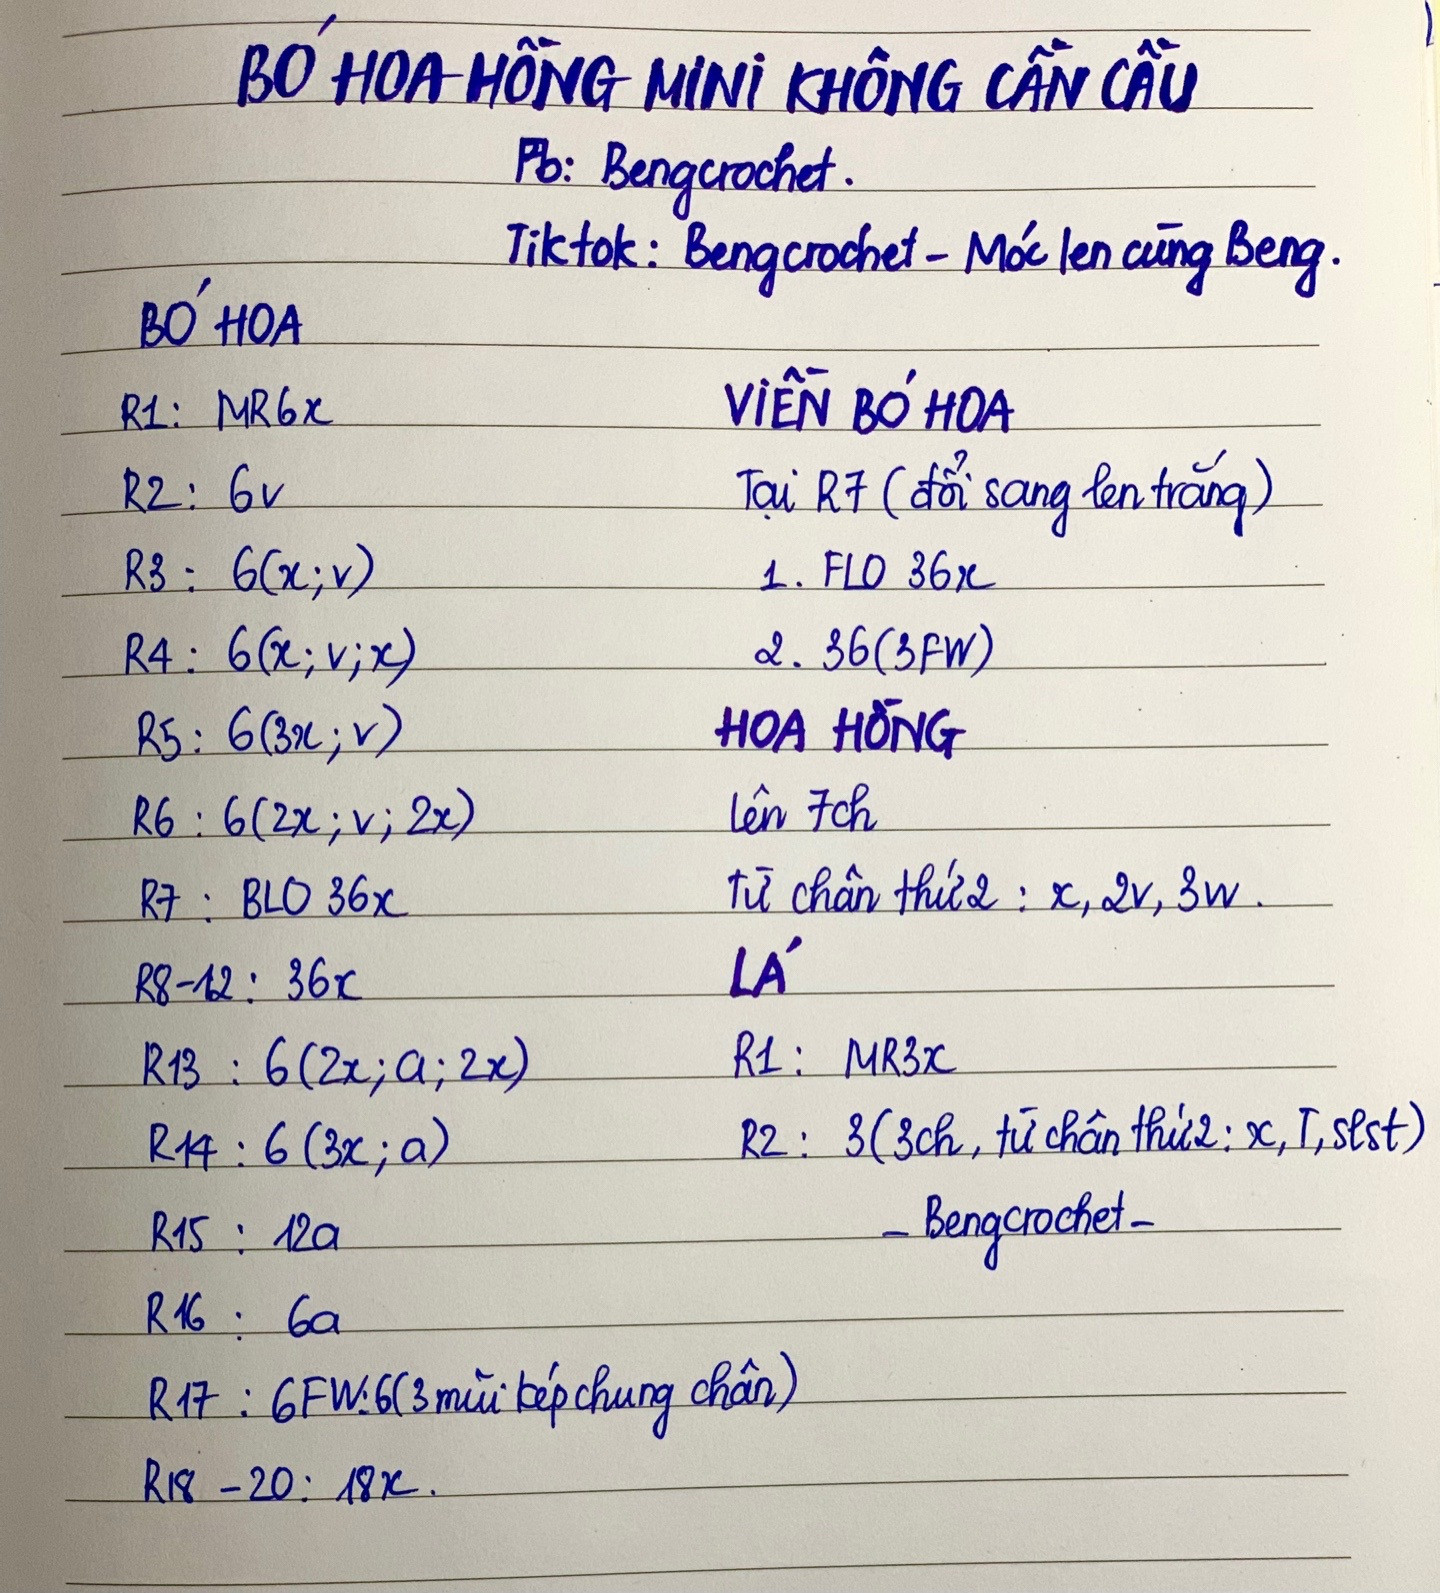 BÓ HOA HỒNG MINI KHÔNG CẦN CẦU
Fb: Bengcrochet.
Tiktok: Bengcrochet - Móc len cùng Beng.
BÓ HOA
R1: MR6x
R2: 6v
R3: 6(x;v)
R4: 6(x;v;x)
R5: 6(3x;v)
R6: 6(2x;v;2x)
R7: BLO 36x
R8-12: 36x
R13: 6(2x;a;2x)
R14: 6(3x;a)
R15: 12a
R16: 6a
R17: 6FW:6(3 mũi kép chung chân)
R18-20: 18x.
VIỀN BÓ HOA
Tại R7 (đổi sang len trắng)
1. FLO 36x
2. 36(3FW)
HOA HỒNG
lên 7ch
từ chân thứ 2: x, 2v, 3w.
LÁ
R1: MR3x
R2: 3(3ch, từ chân thứ 2: x, T, slst)
- Bengcrochet -